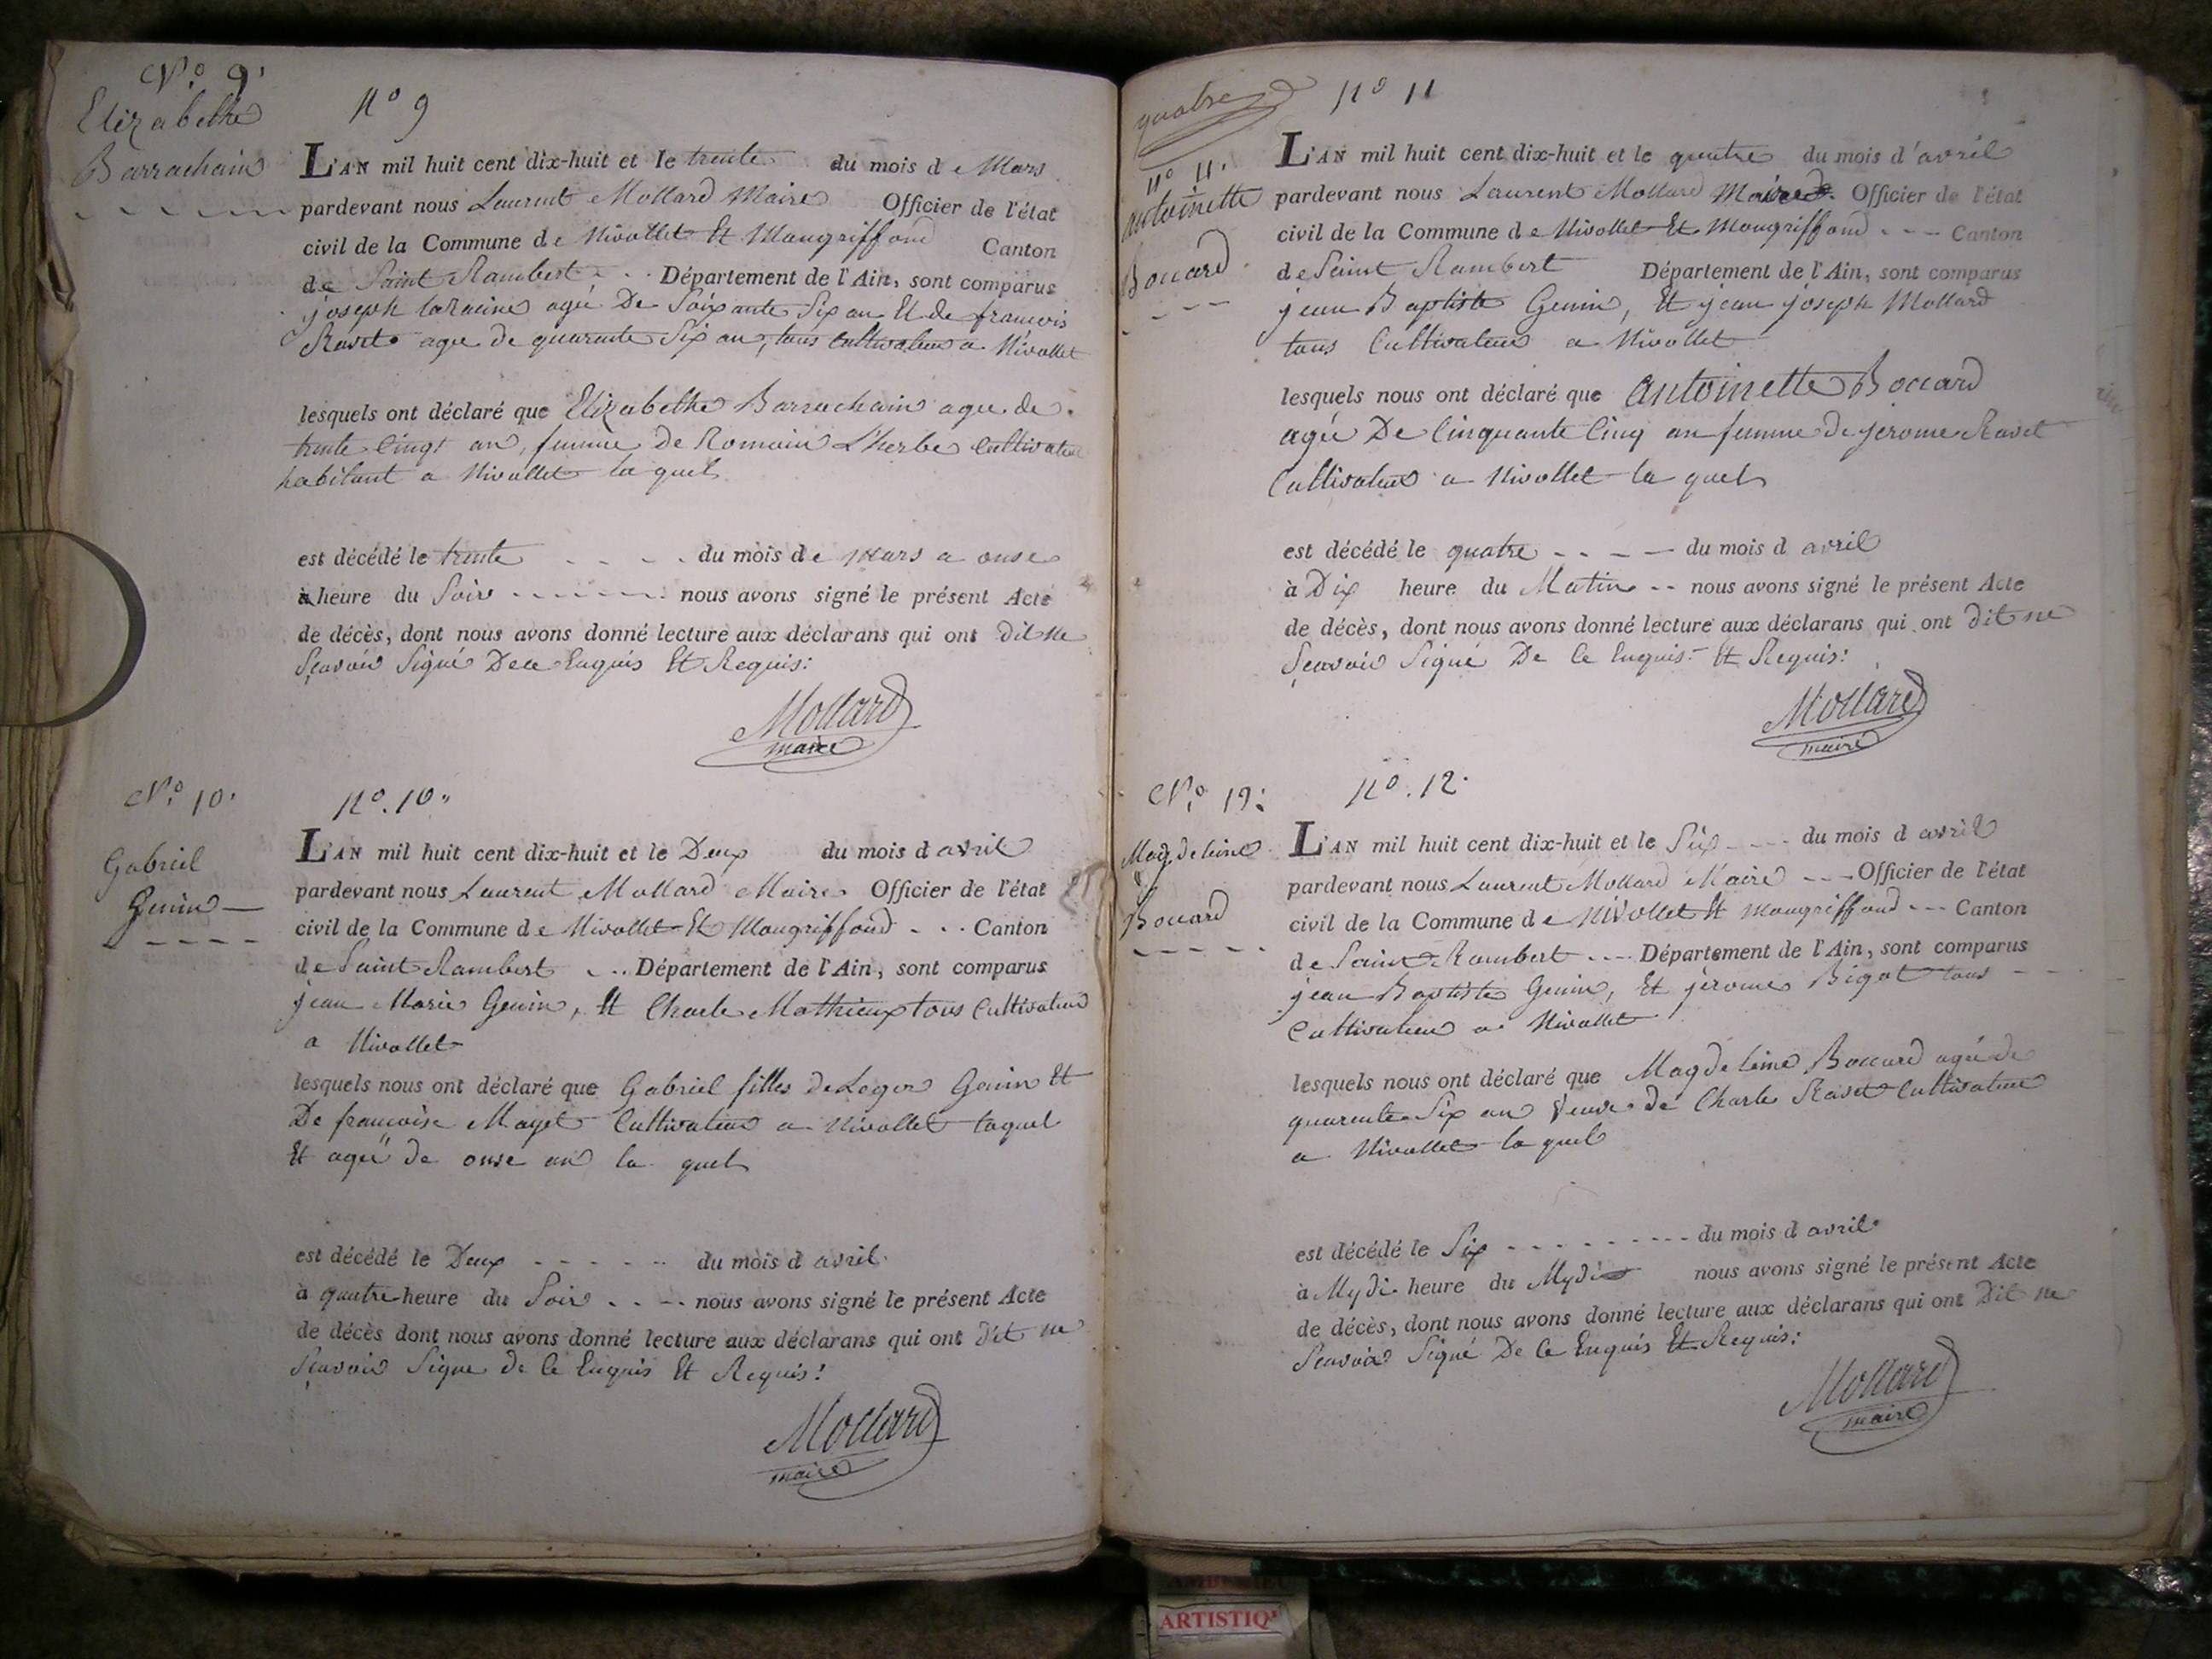 N.º 9.
Elizabethe
Barrachain
nº 9
L'AN mil huit cent dix-huit et le trente du mois de Mars
pardevant nous Laurent Mollard Maire Officier de l'état
civil de la Commune de Nivollet Et Mongriffond Canton
de Saint Rambert Département de l'Ain, sont comparus
joseph agé De Soixante Six an Et de francois
Ravet agé de quarente Six an, tous Cultivateur a Nivollet
lesquels ont déclaré que Elizabethe Barrachain agee de
trente Cinq an, femme de Romain L'herbe Cultivateur
habitant a Nivollet la quel
est décédé le trente du mois de Mars a onse
à heure du Soire nous avons signé le présent Acte
de décès, dont nous avons donné lecture aux déclarans qui ont dit ne
Sçavoir Signé De ce Enquis Et Requis:
Mollard
maire
N.º 10.
Gabriel
Genin
nº. 10.
L'AN mil huit cent dix-huit et le Deux du mois d avril
pardevant nous Laurent Mollard Maire Officier de l'état
civil de la Commune de Nivollet Et Mongriffond Canton
de Saint Rambert Département de l'Ain, sont comparus
jean Marie Genin, Et Charle Mathieux tous Cultivateur
a Nivollet
lesquels nous ont déclaré que Gabriel filles de Leger Genin Et
De francoise Mayet Cultivateur a Nivollet laquel
Et agée de onse an la quel
est décédé le Deux du mois d avril
à quatre heure du Soir nous avons signé le présent Acte
de décès dont nous avons donné lecture aux déclarans qui ont dit ne
Sçavoir Signe de Ce Enquis Et Requis:
Mollard
maire
quatre
nº 11.
antoinette
Boccard
nº 11
L'AN mil huit cent dix-huit et le quatre du mois d'avril
pardevant nous Laurent Mollard Maire Officier de l'état
civil de la Commune de Nivollet Et Mongriffond Canton
de Saint Rambert Département de l'Ain, sont comparus
jean Baptiste Genin, Et jean joseph Mollard
tous Cultivateur a Nivollet
lesquels nous ont déclaré que antoinette Boccard
agée De Cinquante Cinq an femme de jerome Ravet
Cultivateur a Nivollet la quel
est décédé le quatre du mois d avril
à Dix heure du Matin nous avons signé le présent Acte
de décès, dont nous avons donné lecture aux déclarans qui ont dit ne
Sçavoir Signé De Ce Enquis Et Requis:
Mollard
maire
N.º 12:
Magdeleine
Boccard
nº. 12.
L'AN mil huit cent dix-huit et le Six du mois d avril
pardevant nous Laurent Mollard Maire Officier de l'état
civil de la Commune de Nivollet Et Mongriffond Canton
de Saint Rambert Département de l'Ain, sont comparus
jean Baptiste Genin, Et jerome Bigot tous
Cultivateur a Nivollet
lesquels nous ont déclaré que Magdeleine Boccard agée de
quarente Six an Veuve de Charle Ravet Cultivateur
a Nivollet la quel
est décédé le Six du mois d avril
à Mydi heure du Mydi nous avons signé le présent Acte
de décès, dont nous avons donné lecture aux déclarans qui ont dit ne
Scavoir Signé De Ce Enquis Et Requis:
Mollard
maire
ARTISTIQ